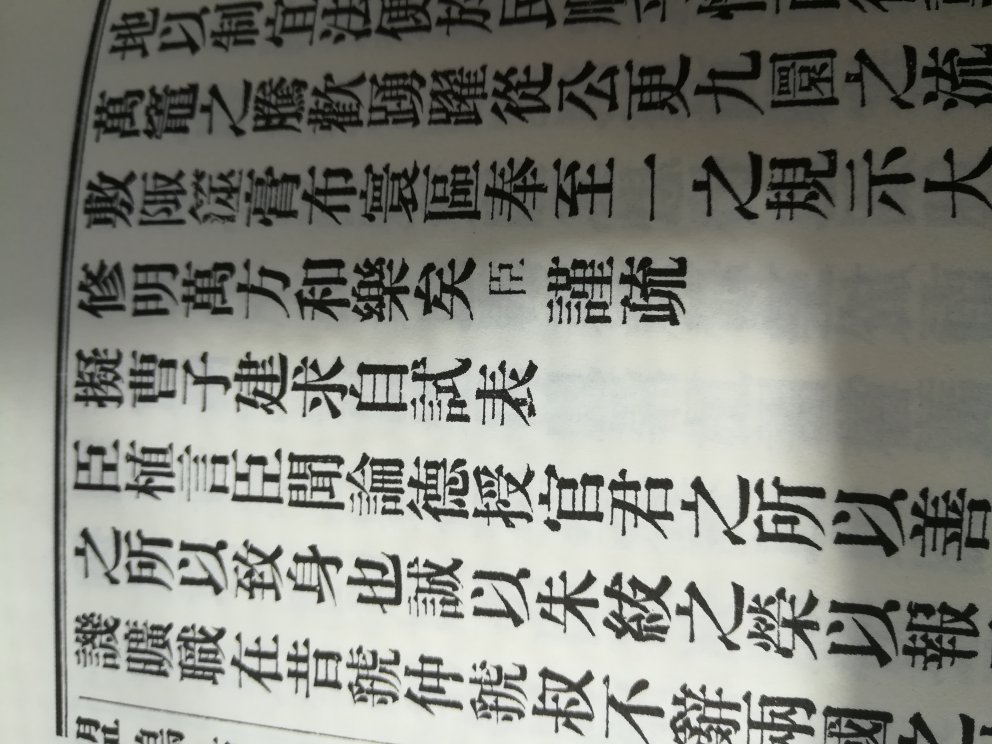 地以制宜法便於民順
萬竈之騰歡踴躍從公更九圜之流
敷陬澨膏布寰區奉至一之規示大
修明萬方和樂矣臣謹疏
擬曹子建求自試表
臣植言臣聞論德授官君之所以善
之所以致身也誠以朱紱之榮以報
譏曠職在昔虢仲虢叔不辭兩國之